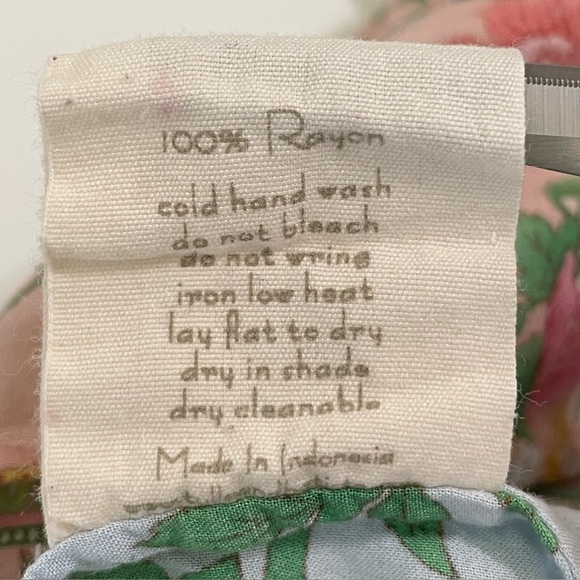 100% Rayon
cold hand wash
do not bleach
do not wring
iron low heat
lay flat to dry
dry in shade
dry cleanable
Made In Indonesia